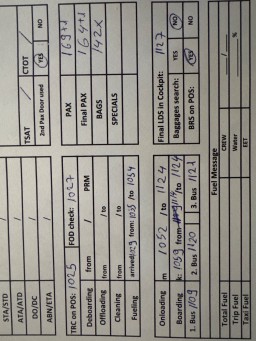 STA/STD /
ATA/ATD / TSAT / CTOT /
DO/DC /
ABN/ETA / 2nd Pax Door used YES NO
TRC on POS: 1025 FOD check: 1027 PAX 169+1
Deboarding from / PRM Final PAX 164+1
Offloading from / to BAGS 142x
Cleaning from / to SPECIALS
Fueling arrived/1029 from: 1035 /to 1054
Onloading m 1032 / to 1124 Final LDS in Cockpit: 1127
Boarding k: 1059 from 1114 /to 1124 Baggages search: YES NO
1. Bus 1109 2. Bus 1120 3. Bus 1121 BRS on POS: YES NO
Fuel Message
Total Fuel CREW /
Trip Fuel Water %
Taxi Fuel EET